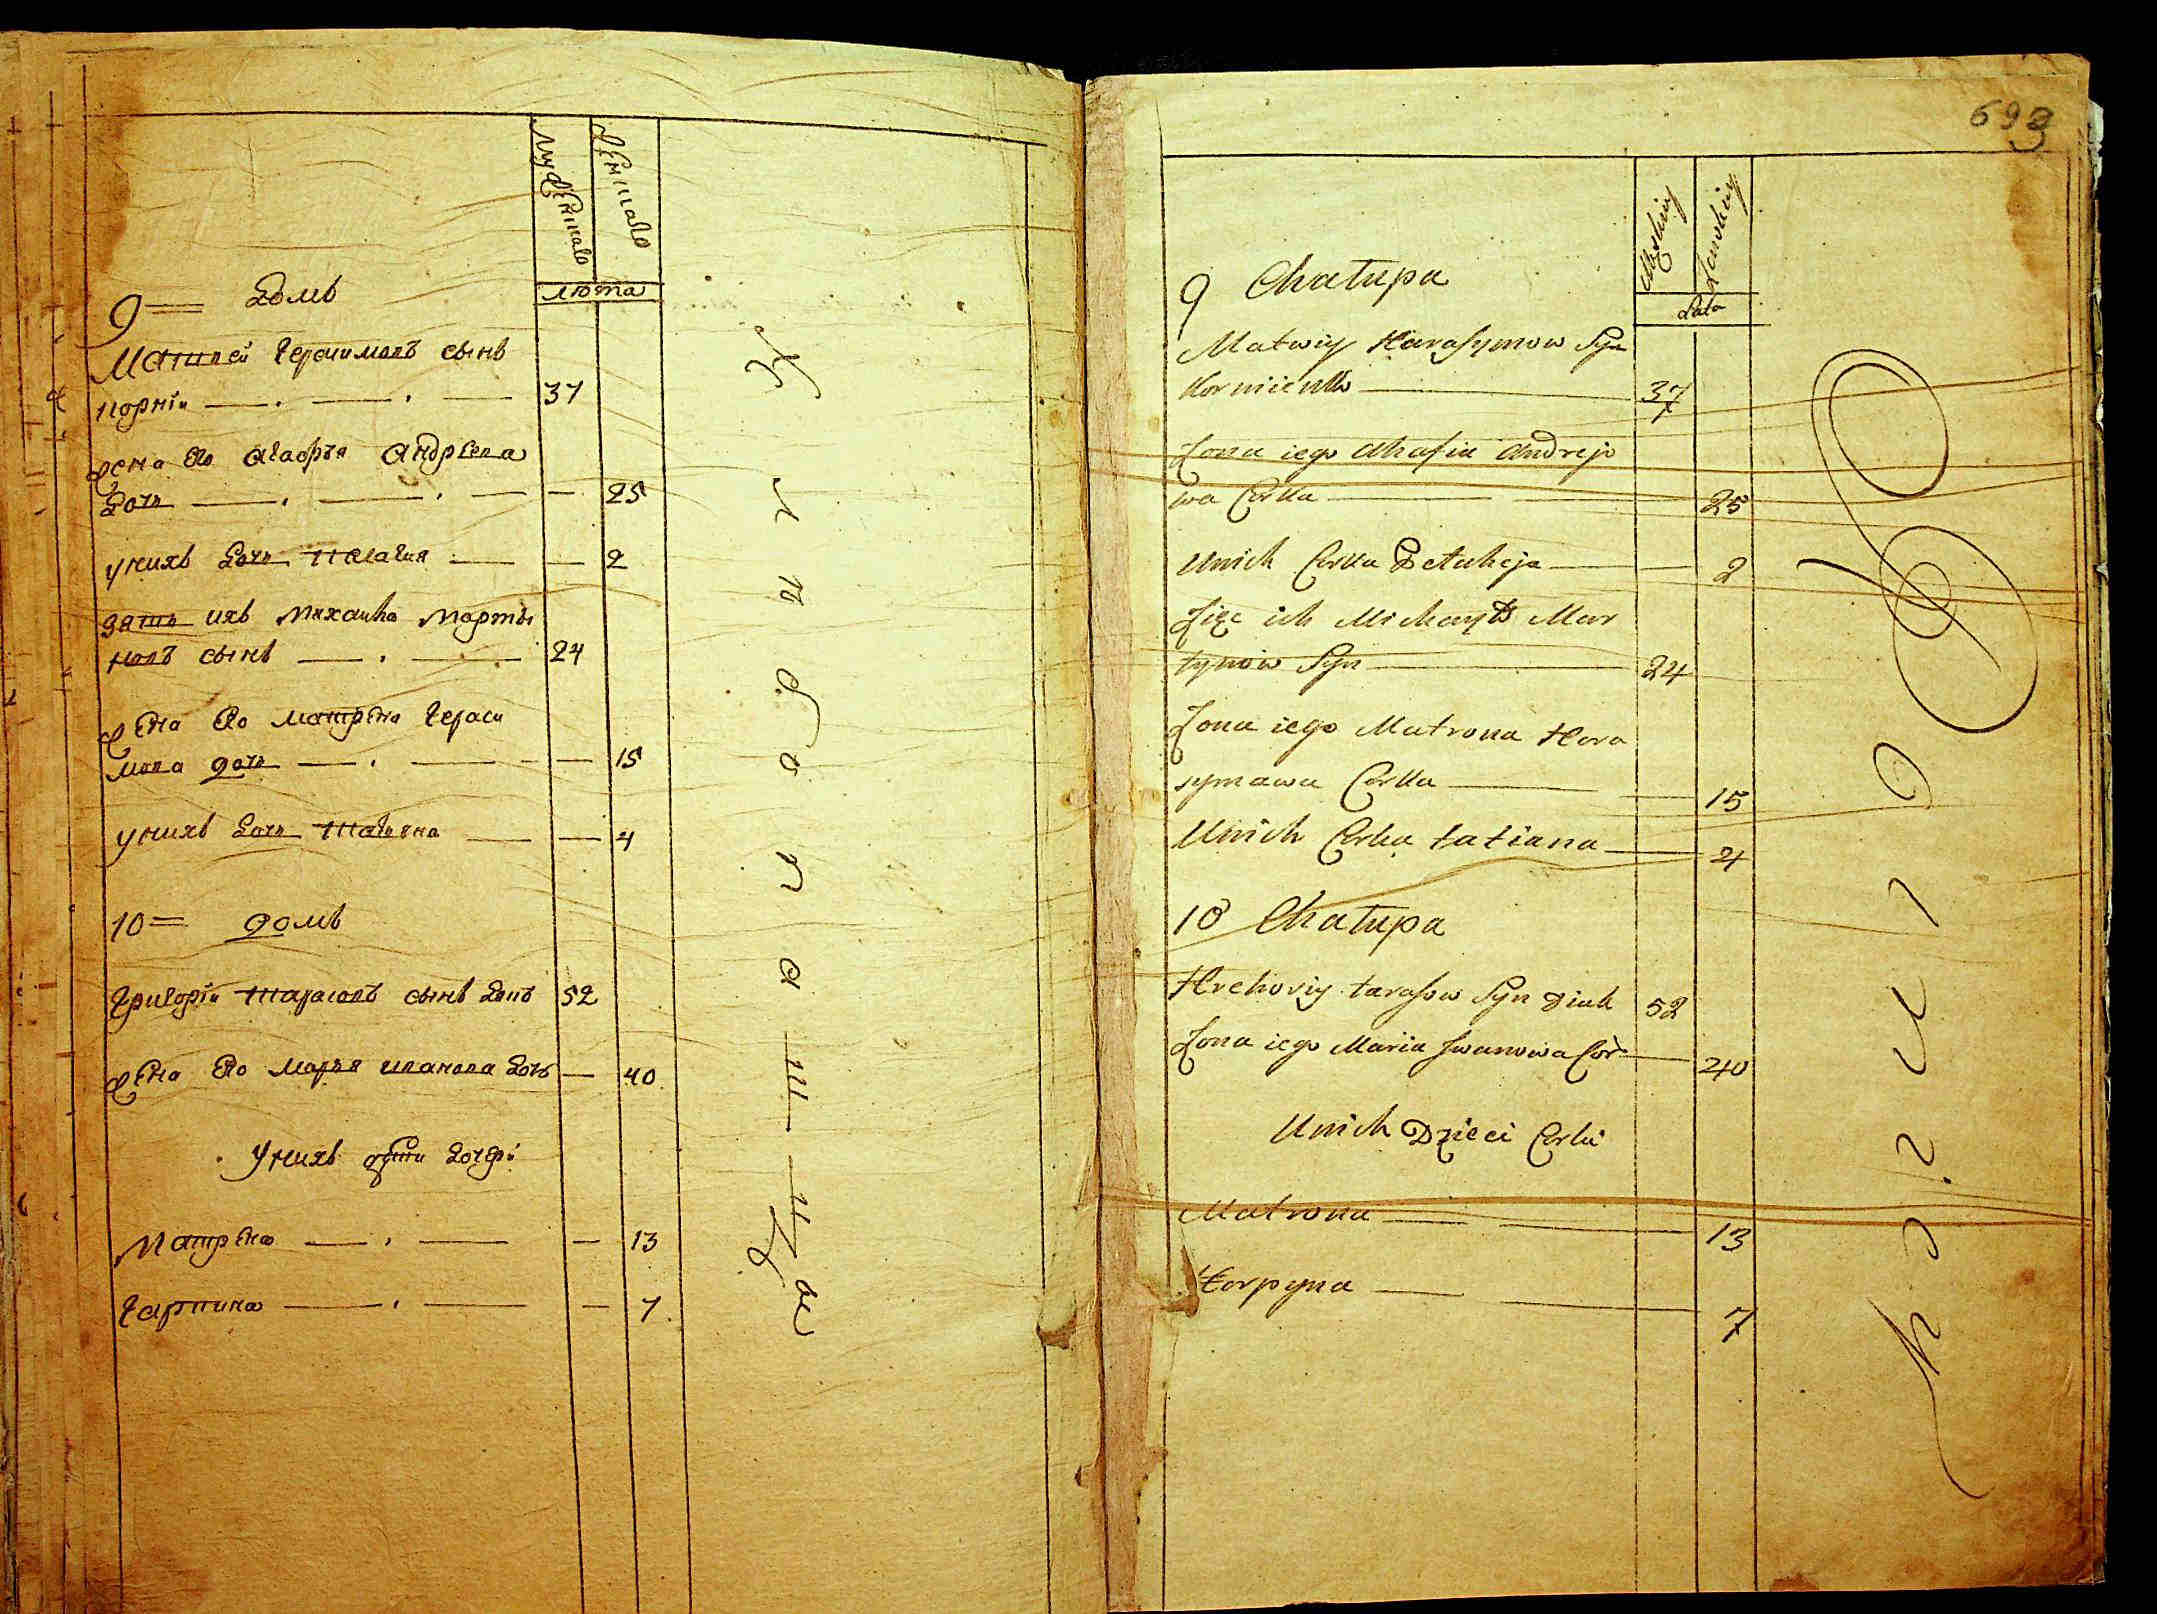 мужеска
женска
лѣта
9 домъ
Матвей Герасимовъ сынъ
корнiи 37
жена его агафья андреева
дочь 25
у нихъ дочь пелагия 2
зять ихъ михаила марты
новъ сынъ 24
жена его матрена гераси
мова дочь 15
у нихъ дочь татияна 4
10 домъ
григорiи тарасовъ сынъ 52
жена его марья иванова дочь 40
у нихъ дети дочери
матрена 13
гарпина 7
693
Męskiey
Żenskiey
Lata
9 Chałupa
Matwiy Harasymow Syn
Korniienko 37
Żona iego Ahafia Andrejo
wa Corka 25
Unich Corka Pelaheja 2
Zięc ich Michayło Mar
tynow Syn 24
Żona iego Matrona Hara
symawa Corka 15
Unich Corka tatiana 4
10 Chałupa
Hrehoriy tarasow Syn Diak 52
Żona iego Maria Iwanowa Cor 40
Unich Dzieci Corki
Matrona 13
Horpyna 7